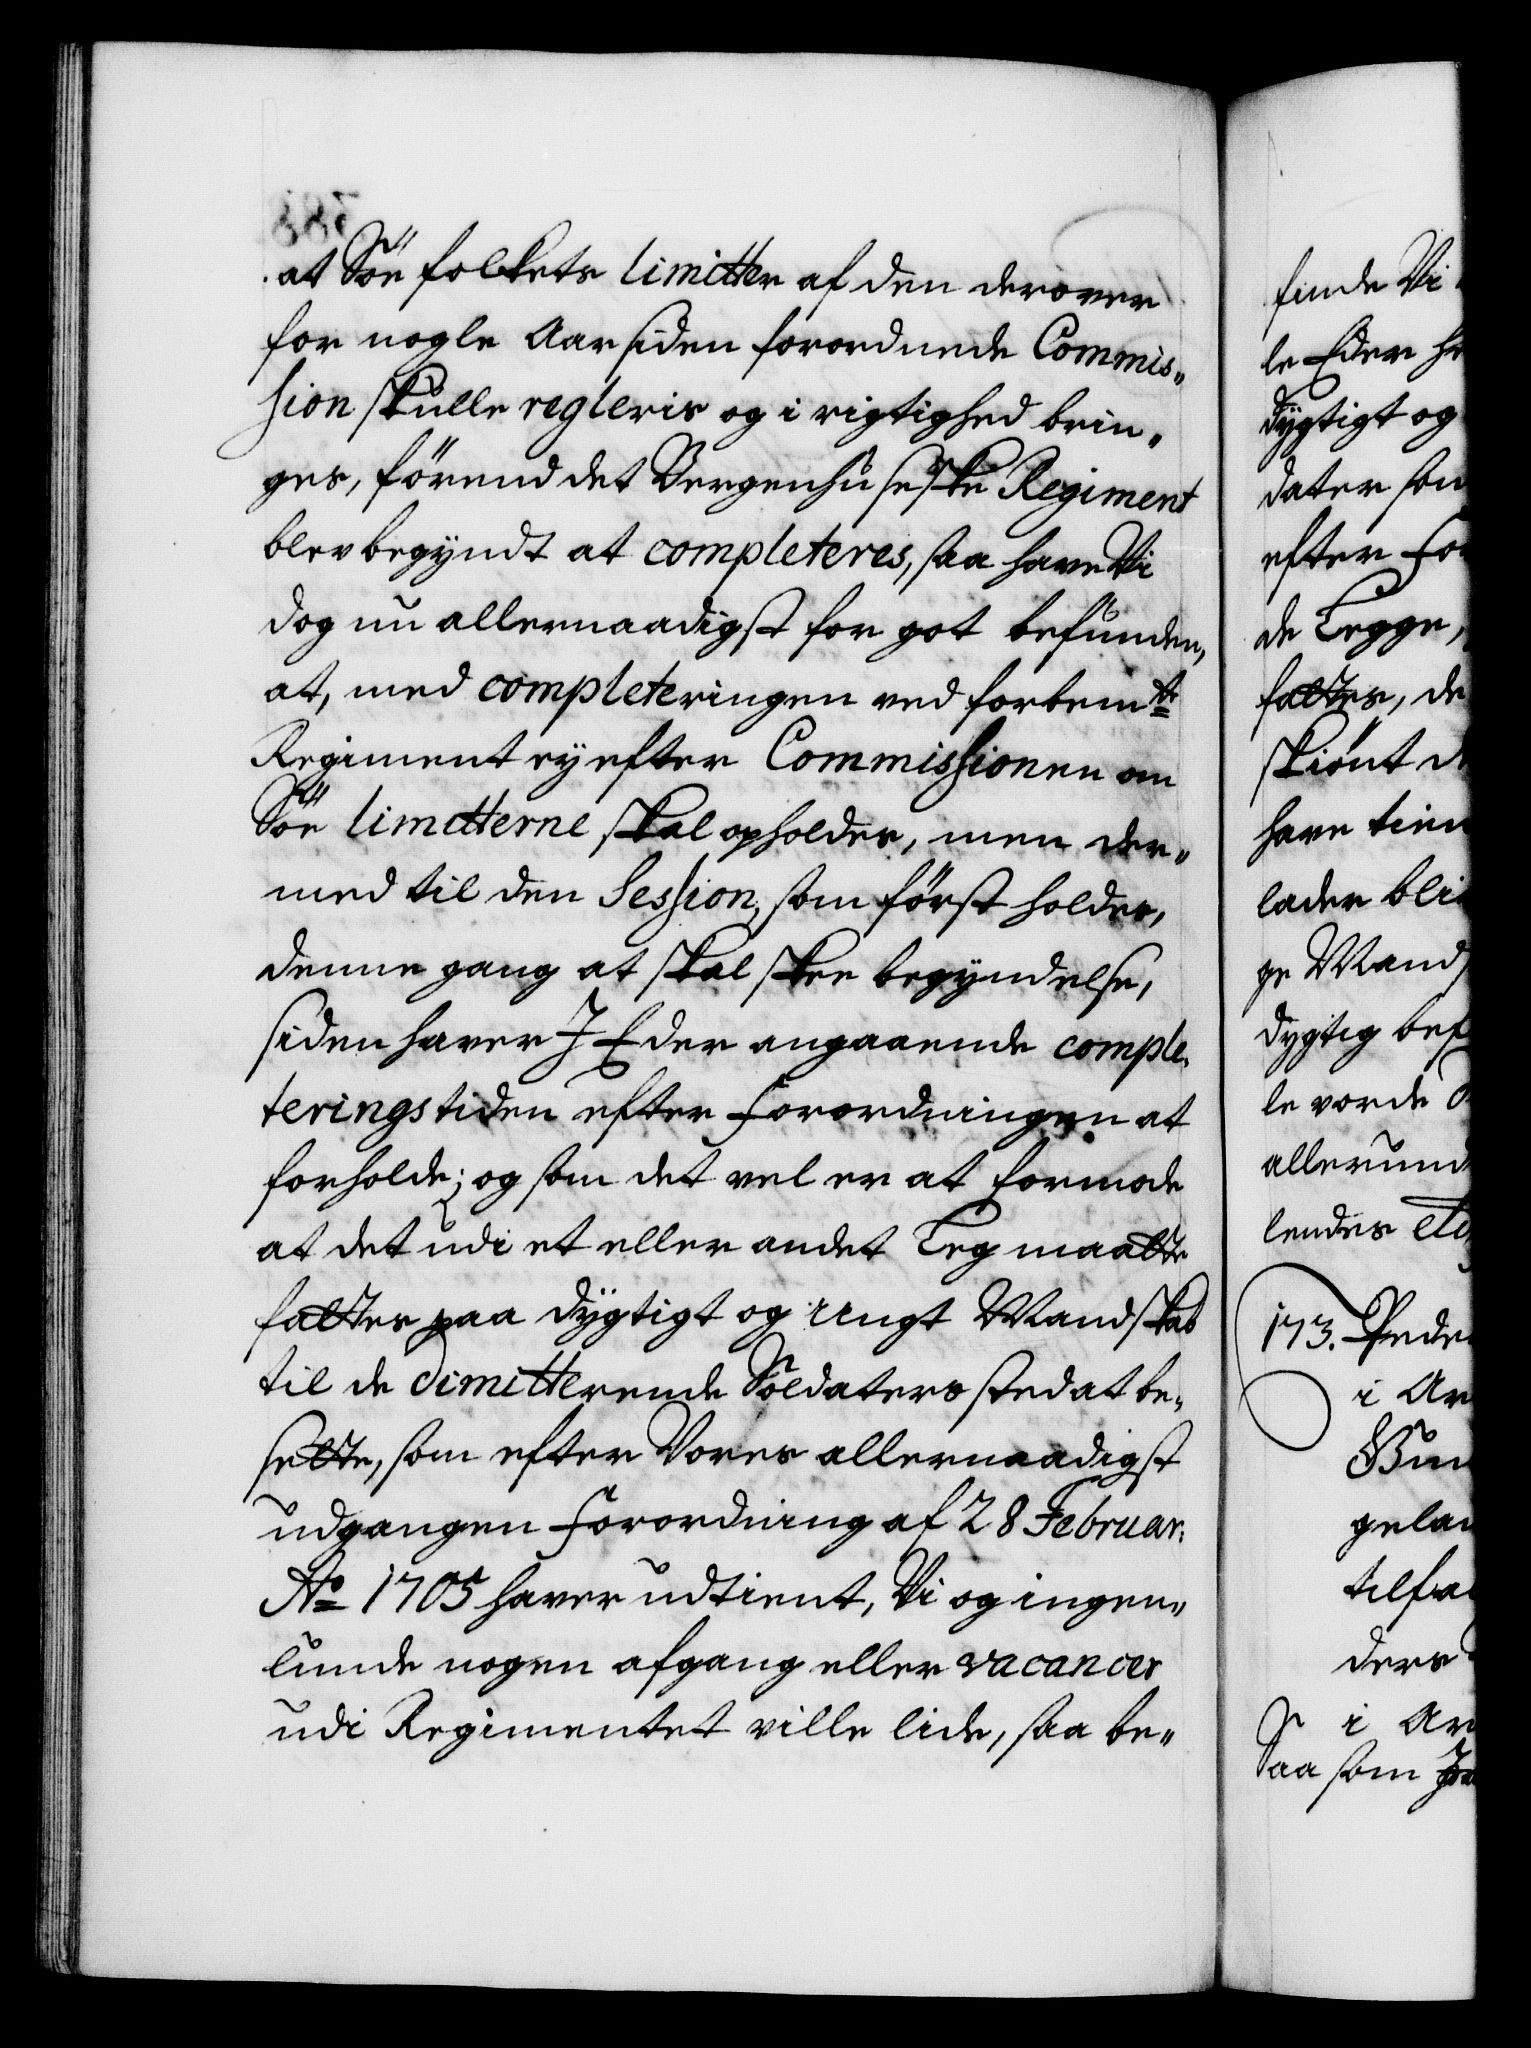 at Söe folkets limitter af den derover
for nogle Aar siden forordnede Commis„
sion skulle regleris og i rigtighed brin„
ges, förend det Bergenhusiske Regiment
blev begyndt at completeres, saa have Vi
dog nu allernaadigst for got befunden,
at, med completeringen ved forbem.te
Regiment ey efter Commissionen om
Söe limitterne skal opholdes, men der„
med til den Session, som först holdes,
denne gang at skal skee begyndelse,
siden haver J Eder angaaende comple„
teringstiden efter Forordningen at
forholde; og som det vel er at formode
at det udi et eller andet Leg maatte
fattes paa dygtigt og ungt Mandskab
til de dimitterende Soldaters sted at be„
sette, som efter Vores allernaadigst
udgangen Forordning af 28 Februar:
Ao 1705 haver udtient, Vi og ingen„
lunde nogen afgang eller vacancer
udi Regimentet ville lide, saa be„
finde Vi
le Eder
dygtigt og
dater som
efter
de Legge,
fattes, de
skiönt
have
lader
ge Mand
dygtig
le vorde
allerund
lendes
173. Peder
i
gelan
tilfal
ders
i
Saa som